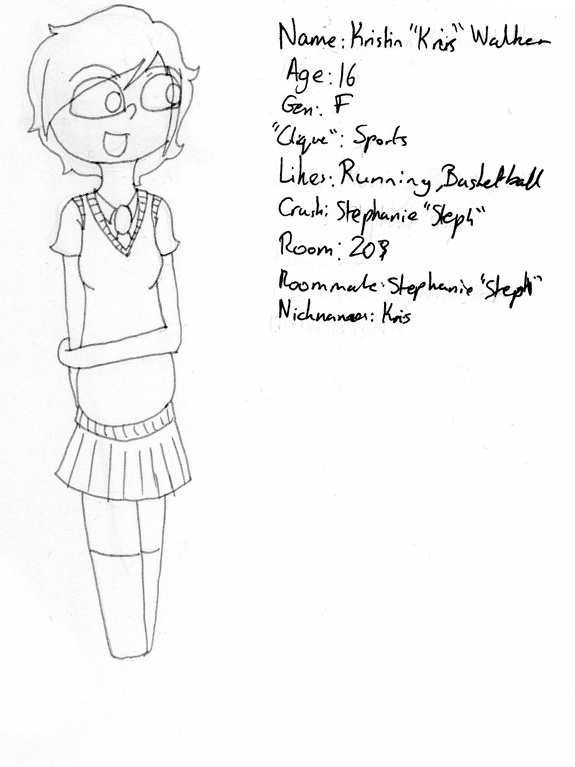 Name: Kristin "Kris" Walker
Age: 16
Gen: F
"Clique": Sports
Likes: Running, Basketball
Crush: Stephanie "Steph"
Room: 203
Roommate: Stephanie "Steph"
Nicknames: Kris